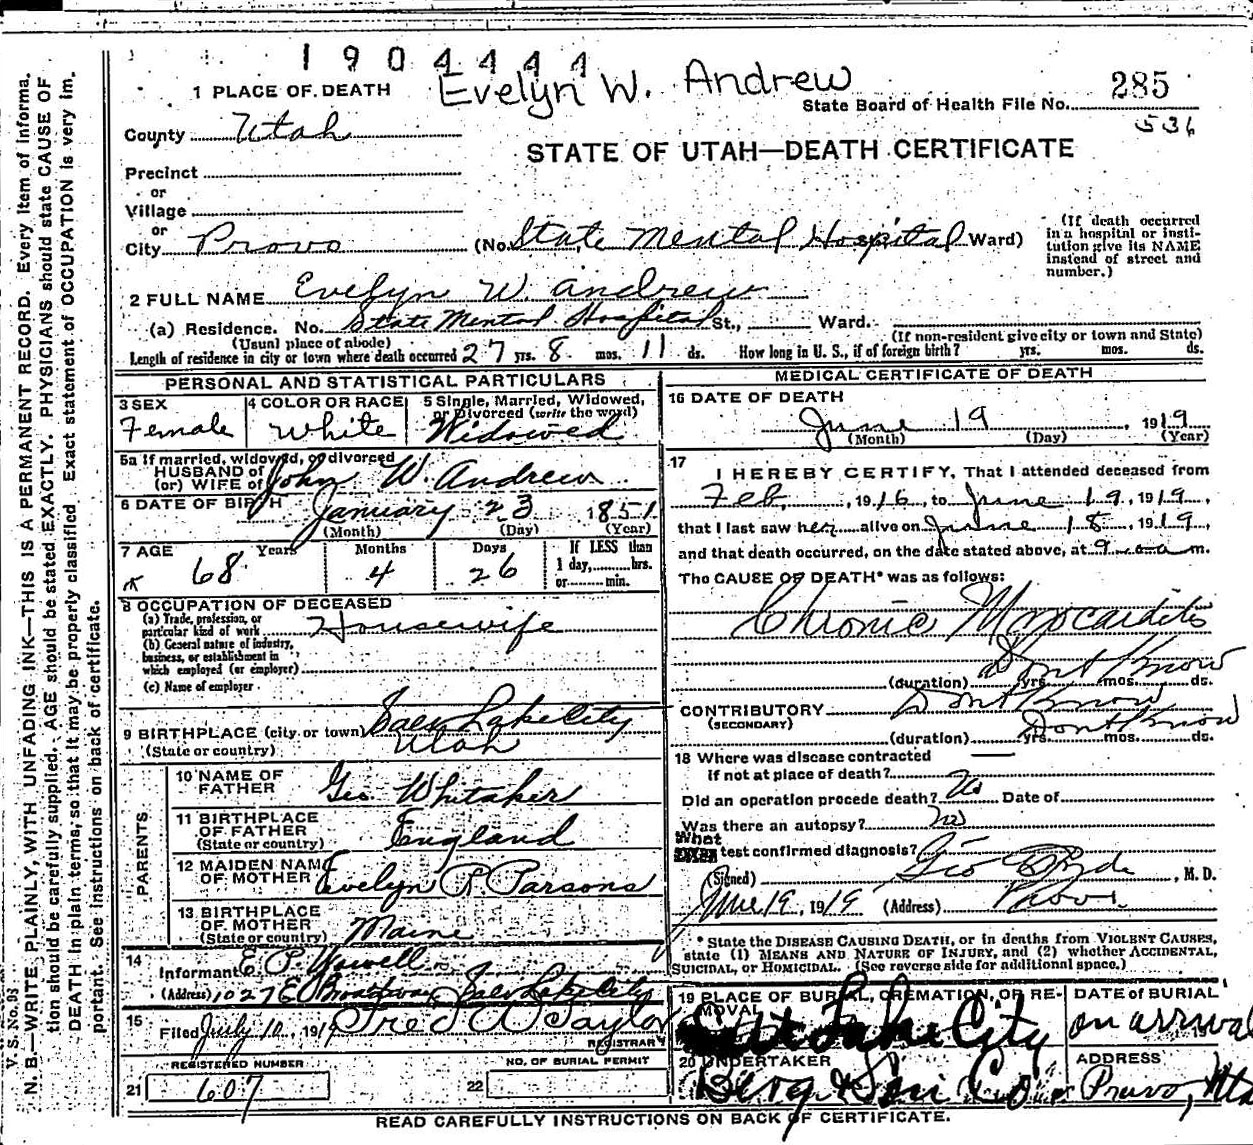 1904444
Evelyn W. Andrew
1 PLACE OF DEATH
State Board of Health File No. 285
536
County Utah
STATE OF UTAH—DEATH CERTIFICATE
Precinct
or
Village
or
City Provo (No. State Mental Hospital Ward)
(If death occurred in a hospital or institution give its NAME instead of street and number.)
2 FULL NAME Evelyn W. Andrew
(a) Residence. No. State Mental Hospital St., Ward.
(Usual place of abode) (If non-resident give city or town and State)
Length of residence in city or town where death occurred 27 yrs. 8 mos. 11 ds. How long in U. S., if of foreign birth? yrs. mos. ds.
PERSONAL AND STATISTICAL PARTICULARS
3 SEX Female
4 COLOR OR RACE White
5 Single, Married, Widowed, or Divorced (write the word) Widowed
5a If married, widowed, or divorced
HUSBAND of
(or) WIFE of John W. Andrew
6 DATE OF BIRTH January 23 1851
(Month) (Day) (Year)
7 AGE Years Months Days If LESS than
68 4 26 1 day, hrs.
or min.
8 OCCUPATION OF DECEASED
(a) Trade, profession, or
particular kind of work Housewife
(b) General nature of industry,
business, or establishment in
which employed (or employer)
(c) Name of employer
9 BIRTHPLACE (city or town) Salt Lake City
(State or country) Utah
PARENTS
10 NAME OF FATHER Geo Whitaker
11 BIRTHPLACE OF FATHER (State or country) England
12 MAIDEN NAME OF MOTHER Evelyn P. Parsons
13 BIRTHPLACE OF MOTHER (State or country) Maine
14
Informant E. P.
(Address) 1027 E Broadway Salt Lake City
15
Filed July 10, 1919 Fred W Taylor
REGISTRAR
REGISTERED NUMBER NO. OF BURIAL PERMIT
21 607 22
MEDICAL CERTIFICATE OF DEATH
16 DATE OF DEATH
June 19, 1919
(Month) (Day) (Year)
17
I HEREBY CERTIFY, That I attended deceased from
Feb, 1916, to June 19, 1919,
that I last saw her alive on June 18, 1919,
and that death occurred, on the date stated above, at 9 a m.
The CAUSE OF DEATH* was as follows:
Chronic Myocarditis
Dont Know
(duration) yrs. mos. ds.
CONTRIBUTORY Dont Know
(SECONDARY) Dont Know
(duration) yrs. mos. ds.
18 Where was disease contracted
if not at place of death?
Did an operation precede death? No Date of
Was there an autopsy? no
What test confirmed diagnosis?
(Signed) Geo E Hyde, M. D.
June 19, 1919 (Address) Provo.
* State the DISEASE CAUSING DEATH, or in deaths from VIOLENT CAUSES,
state (1) MEANS AND NATURE OF INJURY, and (2) whether ACCIDENTAL,
SUICIDAL, OR HOMICIDAL. (See reverse side for additional space.)
19 PLACE OF BURIAL, CREMATION, OR REMOVAL Salt Lake City
DATE OF BURIAL on arrival 19
20 UNDERTAKER Berg & Son Co
ADDRESS Provo, Uta
READ CAREFULLY INSTRUCTIONS ON BACK OF CERTIFICATE.
V. S. No. 98
N. B.—WRITE PLAINLY, WITH UNFADING INK—THIS IS A PERMANENT RECORD. Every item of informa-
tion should be carefully supplied. AGE should be stated EXACTLY. PHYSICIANS should state CAUSE OF
DEATH in plain terms, so that it may be properly classified. Exact statement of OCCUPATION is very im-
portant. See instructions on back of certificate.